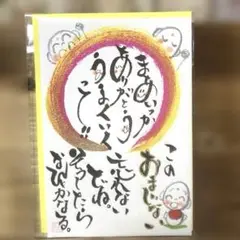 まぁいっか
ありがとう
うまくいく
この
おまじない
忘れない
でね。
そうしたら
なんとかなる。